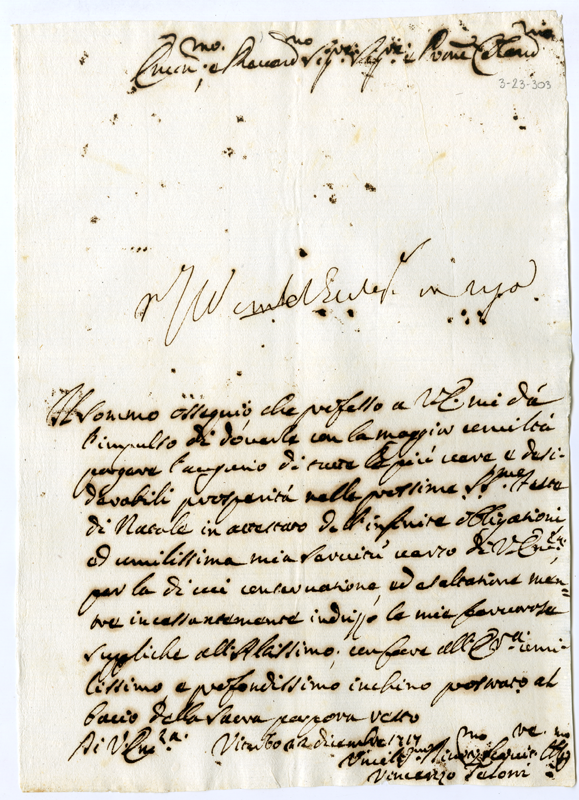 Emin.mo e Reverend.mo Sig.re Sig.re e Prone Colend.mo
3-23-303
Il sommo ossequio che professo a V.E. mi dà
l'impulso di doverle con la maggior umiltà
porgere l'augurio di tutte le più vere e desi-
derabili prosperità nelle prossime S.me feste
di Natale in attestato dell'infinite obligationi,
ed umilissima mia servitù verso di V.Em.za
per la di cui conservatione, ed esaltatione men-
tre incessantemente indrizzo le mie fervorose
suppliche all'Altissimo, con fare all'E.V. umi-
lissimo e profondissimo inchino prostrato al
bacio della sacra porpora resto
Di V.Em.za Viterbo 12 dicembre 1717
Vincenzo